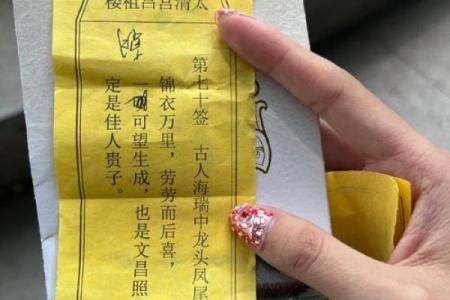 太清宫吕祖楼
第七十签 古人海瑞中龙头凤尾
锦衣万里，劳劳而后喜，
一可望生成，也是文昌照
定是佳人贵子。